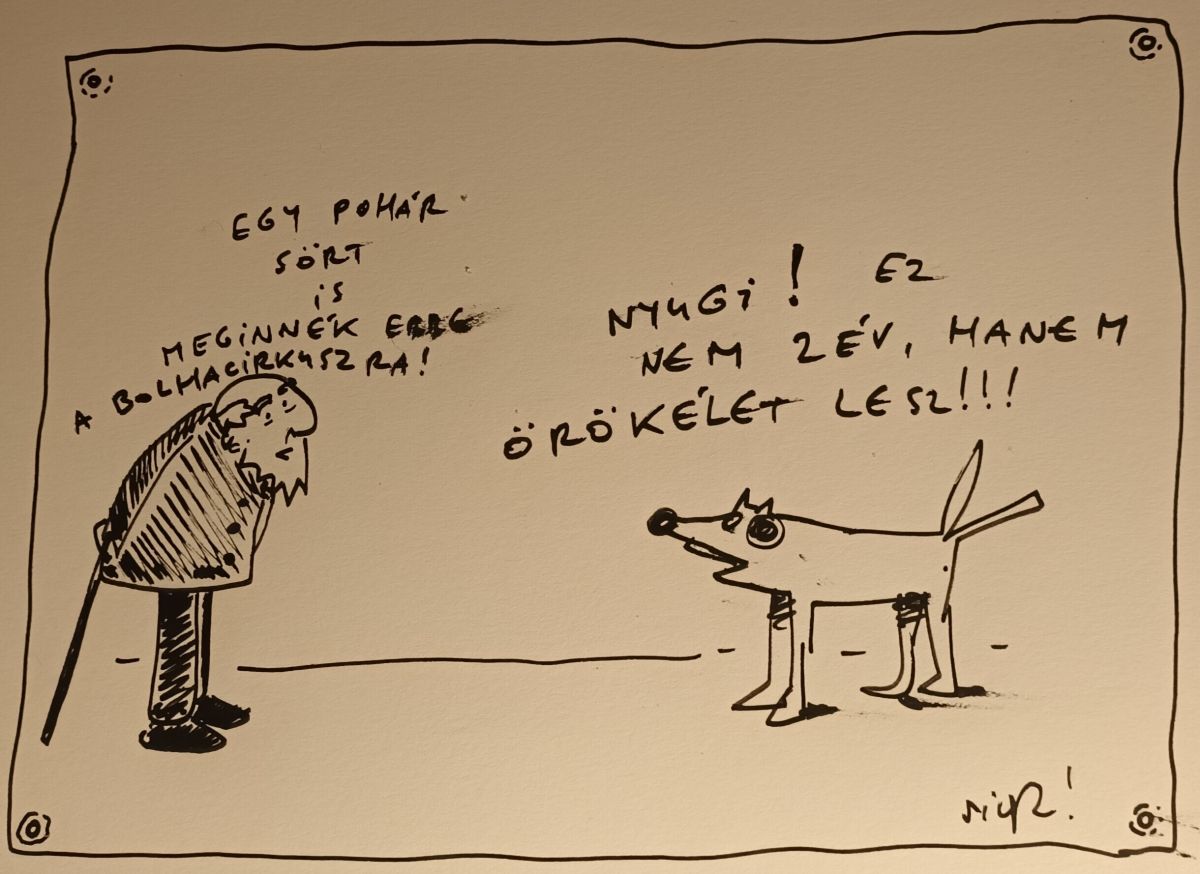 EGY POHÁR
SÖRT
iS
MEGiNNÉK ERRE
A BOLHACiRKUSZRA!
NYUGi! EZ
NEM 2 ÉV, HANEM
ÖRÖKÉLET LESZ!!!